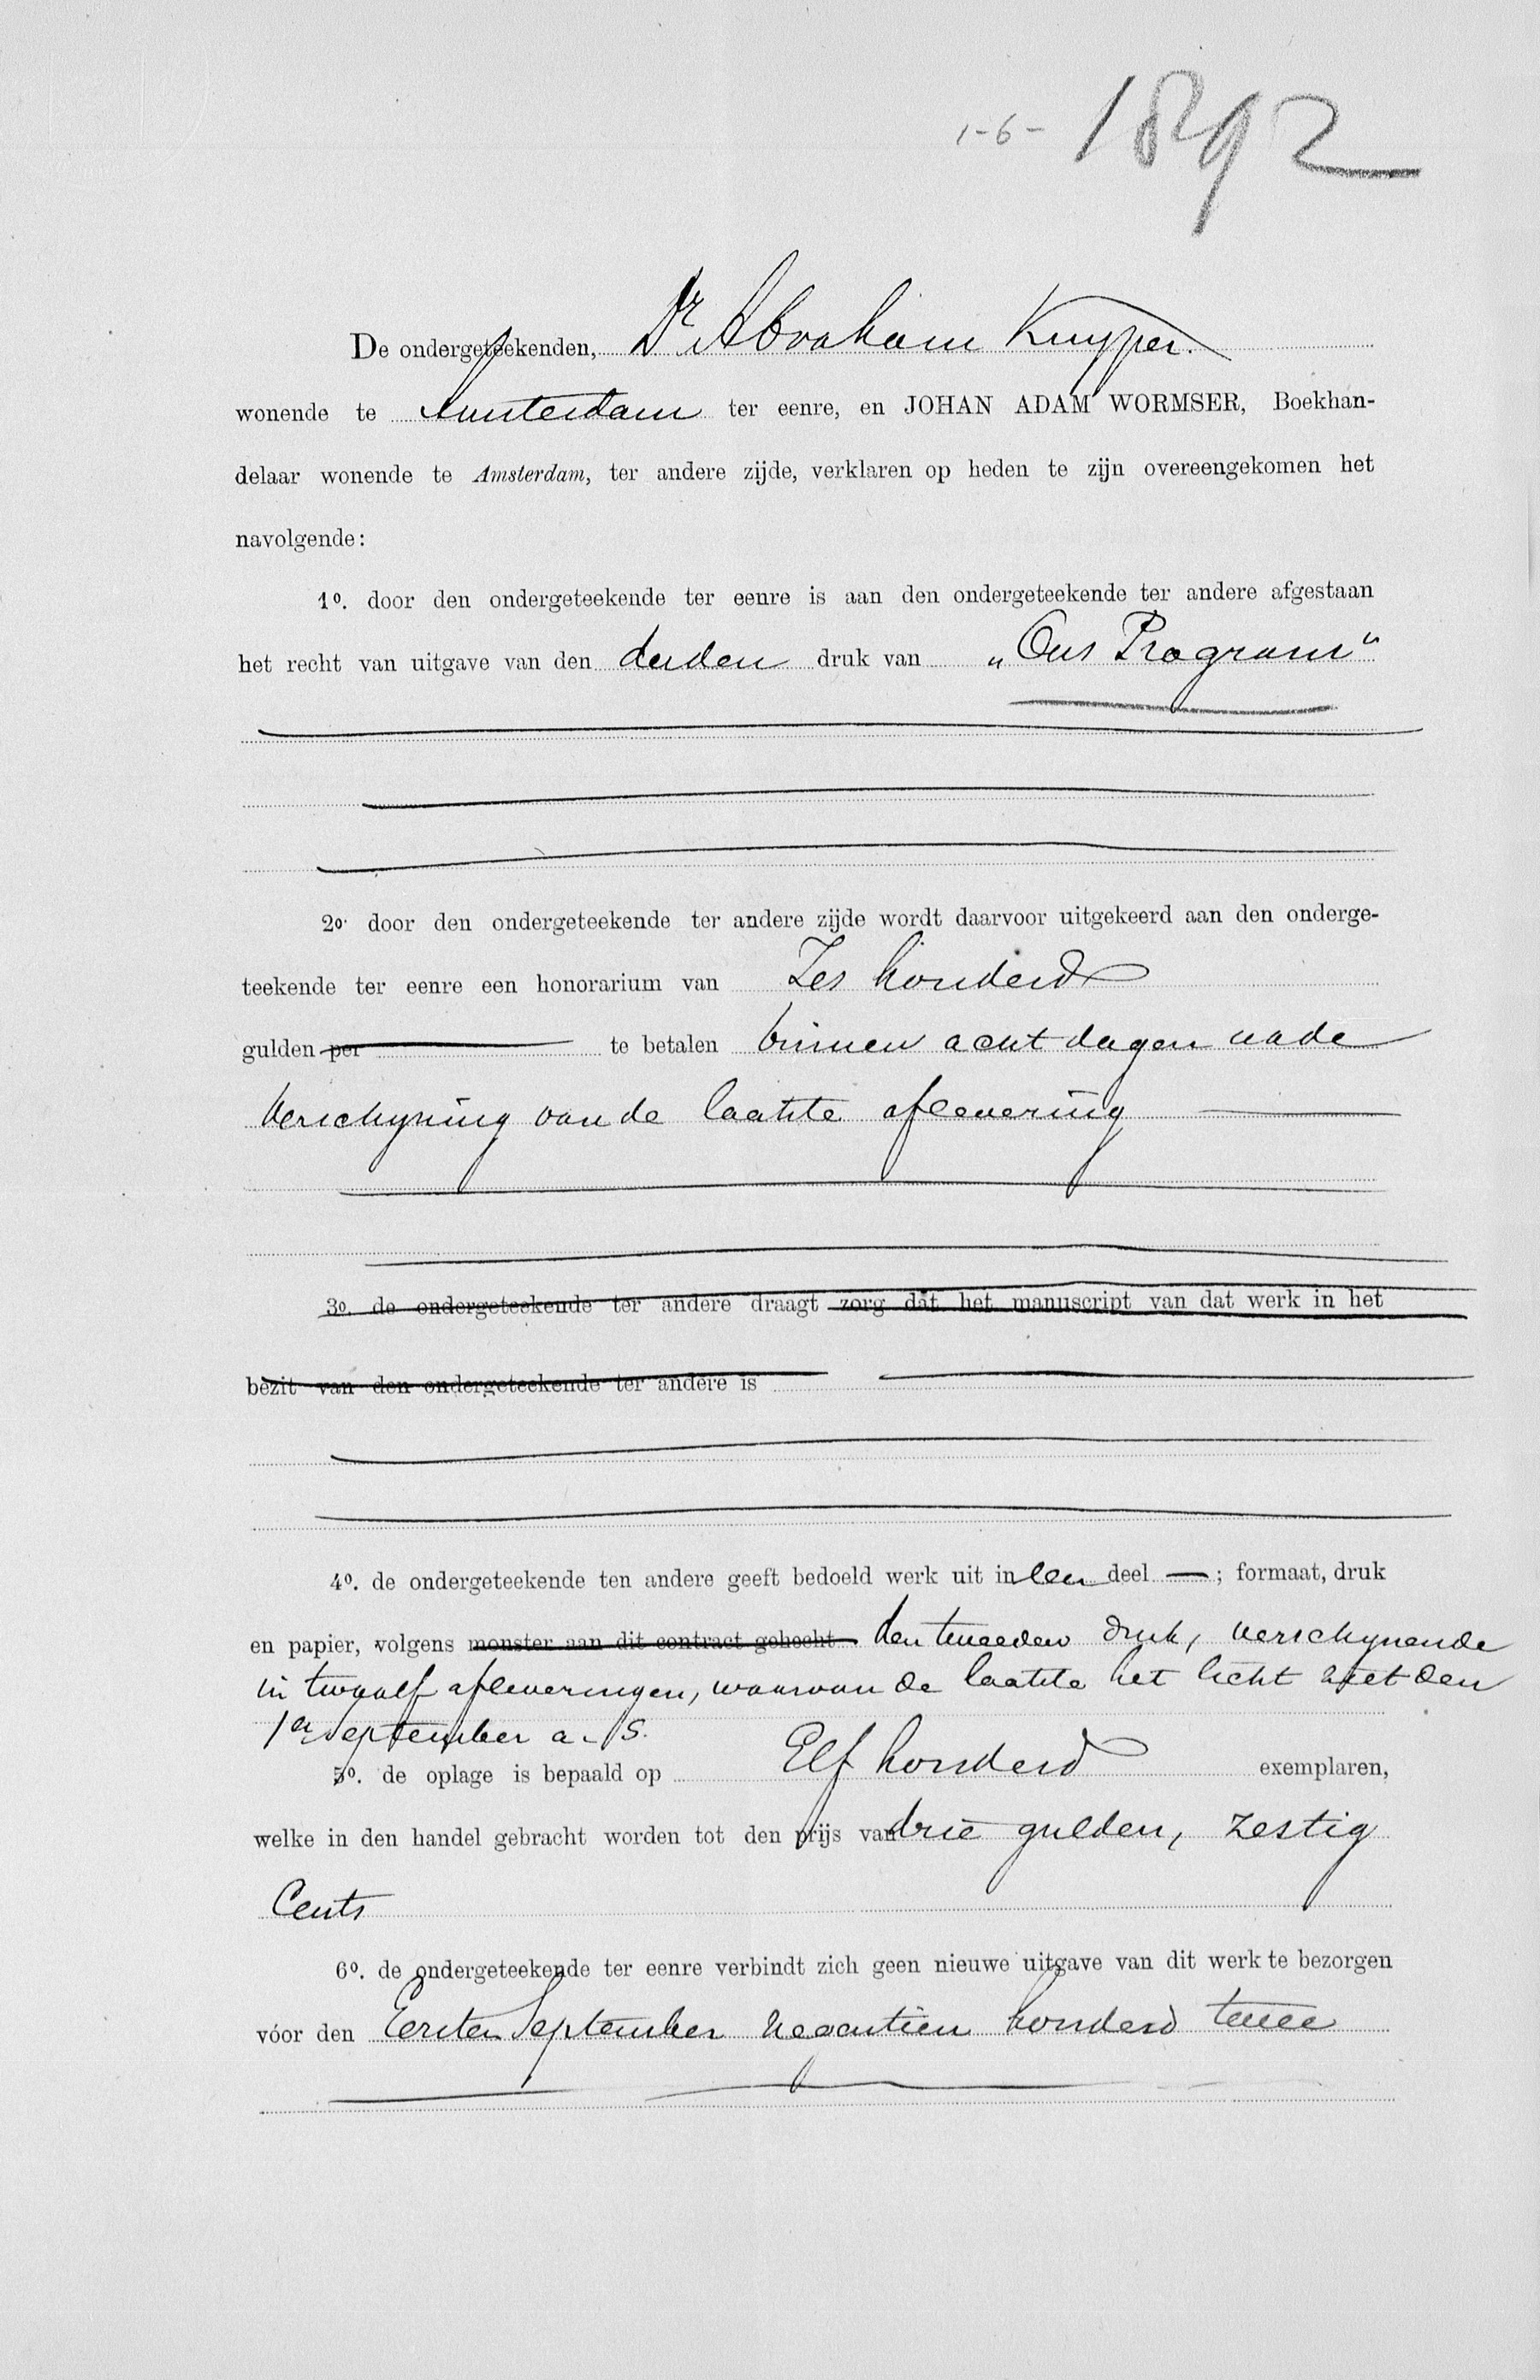 1-6- 1892
De ondergeteekenden, Dr Abraham Kuyper.
wonende te Amsterdam ter eenre, en JOHAN ADAM WORMSER, Boekhan-
delaar wonende te Amsterdam, ter andere zijde, verklaren op heden te zijn overeengekomen het
navolgende:
1o. door den ondergeteekende ter eenre is aan den ondergeteekende ter andere afgestaan
het recht van uitgave van den derden druk van „Ons Program“
2o. door den ondergeteekende ter andere zijde wordt daarvoor uitgekeerd aan den onderge-
teekende ter eenre een honorarium van Zes honderd
gulden per te betalen binnen acht dagen na de
verschyning van de laatste aflevering
3o. de ondergeteekende ter andere draagt zorg dat het manuscript van dat werk in het
bezit van den ondergeteekende ter andere is
4o. de ondergeteekende ten andere geeft bedoeld werk uit in een deel —; formaat, druk
en papier, volgens monster aan dit contract gehecht den tweeden druk, verschynende
in twaalf afleveringen, waarvan de laatste het licht ziet den
1en September a.s.
5o. de oplage is bepaald op Elf honderd exemplaren,
welke in den handel gebracht worden tot den prijs van drie gulden, zestig
Cents
6o. de ondergeteekende ter eenre verbindt zich geen nieuwe uitgave van dit werk te bezorgen
vóor den Eersten September negentien honderd twee